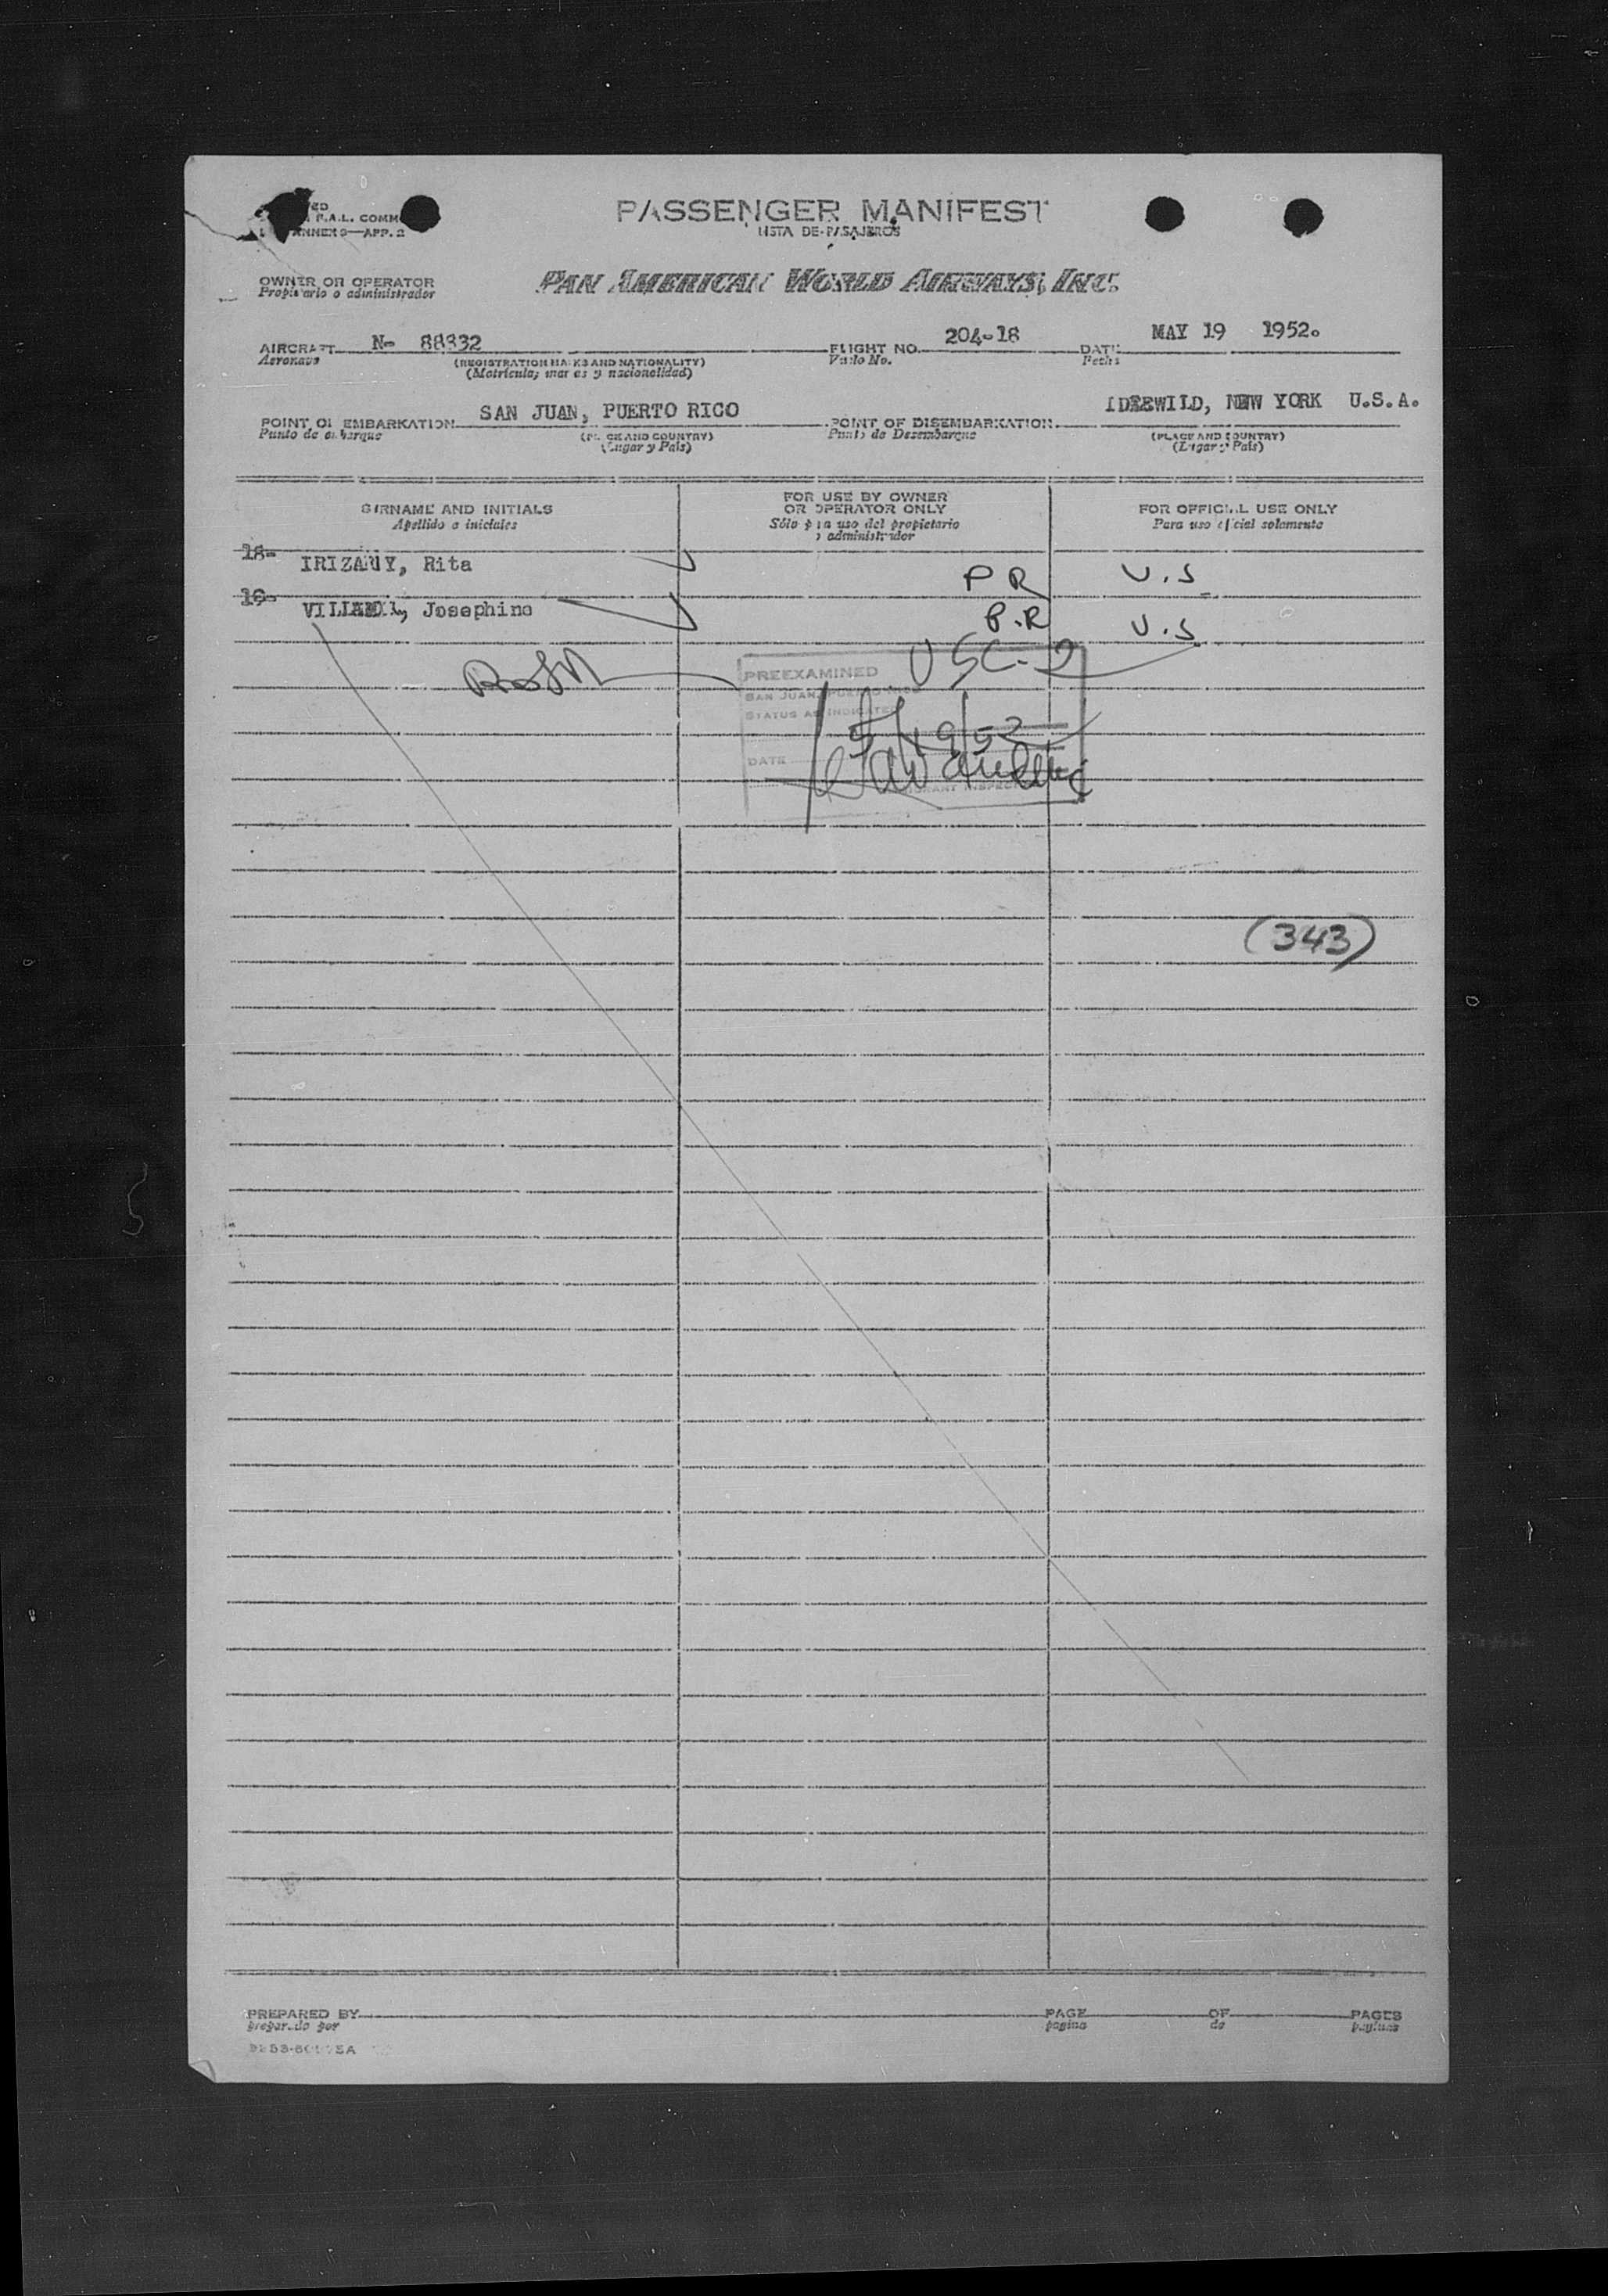 P.A.L. COMM
ANNEX 9—APP. 2
PASSENGER MANIFEST
LISTA DE PASAJEROS
OWNER OR OPERATOR
Propietario o administrador
PAN AMERICAN WORLD AIRWAYS, INC.
AIRCRAFT N- 88832 FLIGHT NO. 204-18 DATE MAY 19 1952.
Aeronave (REGISTRATION MARKS AND NATIONALITY) Vuelo No. Fecha
(Matricula, marcas y nacionalidad)
POINT OF EMBARKATION SAN JUAN, PUERTO RICO POINT OF DISEMBARKATION IDLEWILD, NEW YORK U.S.A.
Punto de embarque (PLACE AND COUNTRY) Punto de Desembarque (PLACE AND COUNTRY)
(Lugar y País) (Lugar y País)
SURNAME AND INITIALS FOR USE BY OWNER OR OPERATOR ONLY FOR OFFICIAL USE ONLY
Apellido e iniciales Sólo para uso del propietario o administrador Para uso oficial solamente
18- IRIZARRY, Rita P R U.S
19- Josephine P.R U.S
USC-2
PREEXAMINED
SAN JUAN, PUERTO RICO
STATUS AS INDICATED
5/19/52
DATE
IMMIGRANT INSPECTOR
(343)
PREPARED BY PAGE OF PAGES
preparado por pagina de paginas